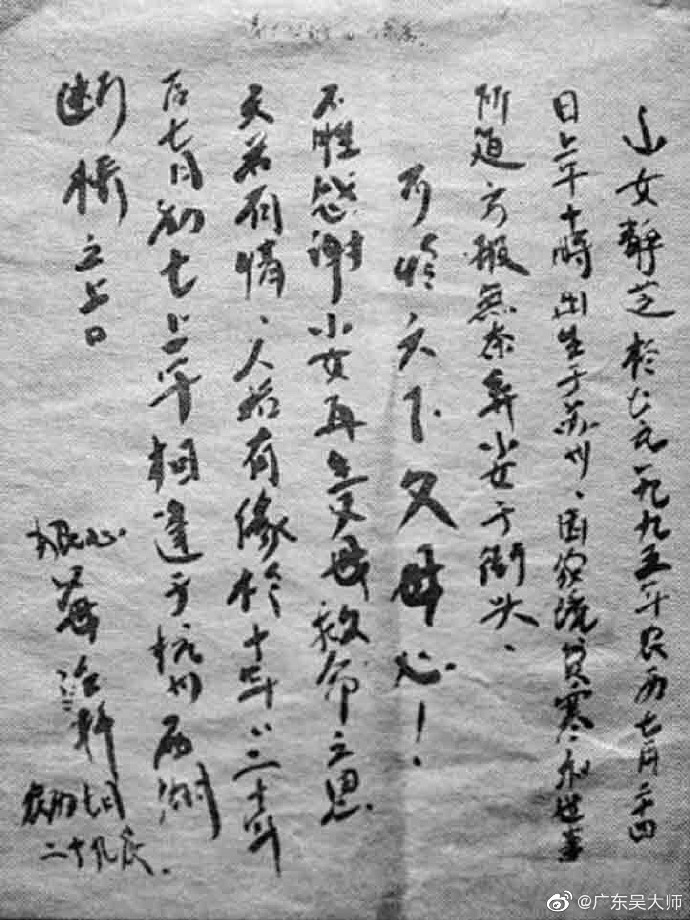 小女静芝於公元一九九五年农历七月二十四
日上午十時出生于苏州、因家境贫寒和世事
所迫万般無奈弃小女于街头、
可怜天下父母心！
不胜感谢小女再生父母救命之恩
天若有情、人若有缘於十年、二十年
后七月初七上午相逢于杭州西湖
断橋之上
狠心 父母 泣拜
农历七月
二十九晨.
@广东吴大师